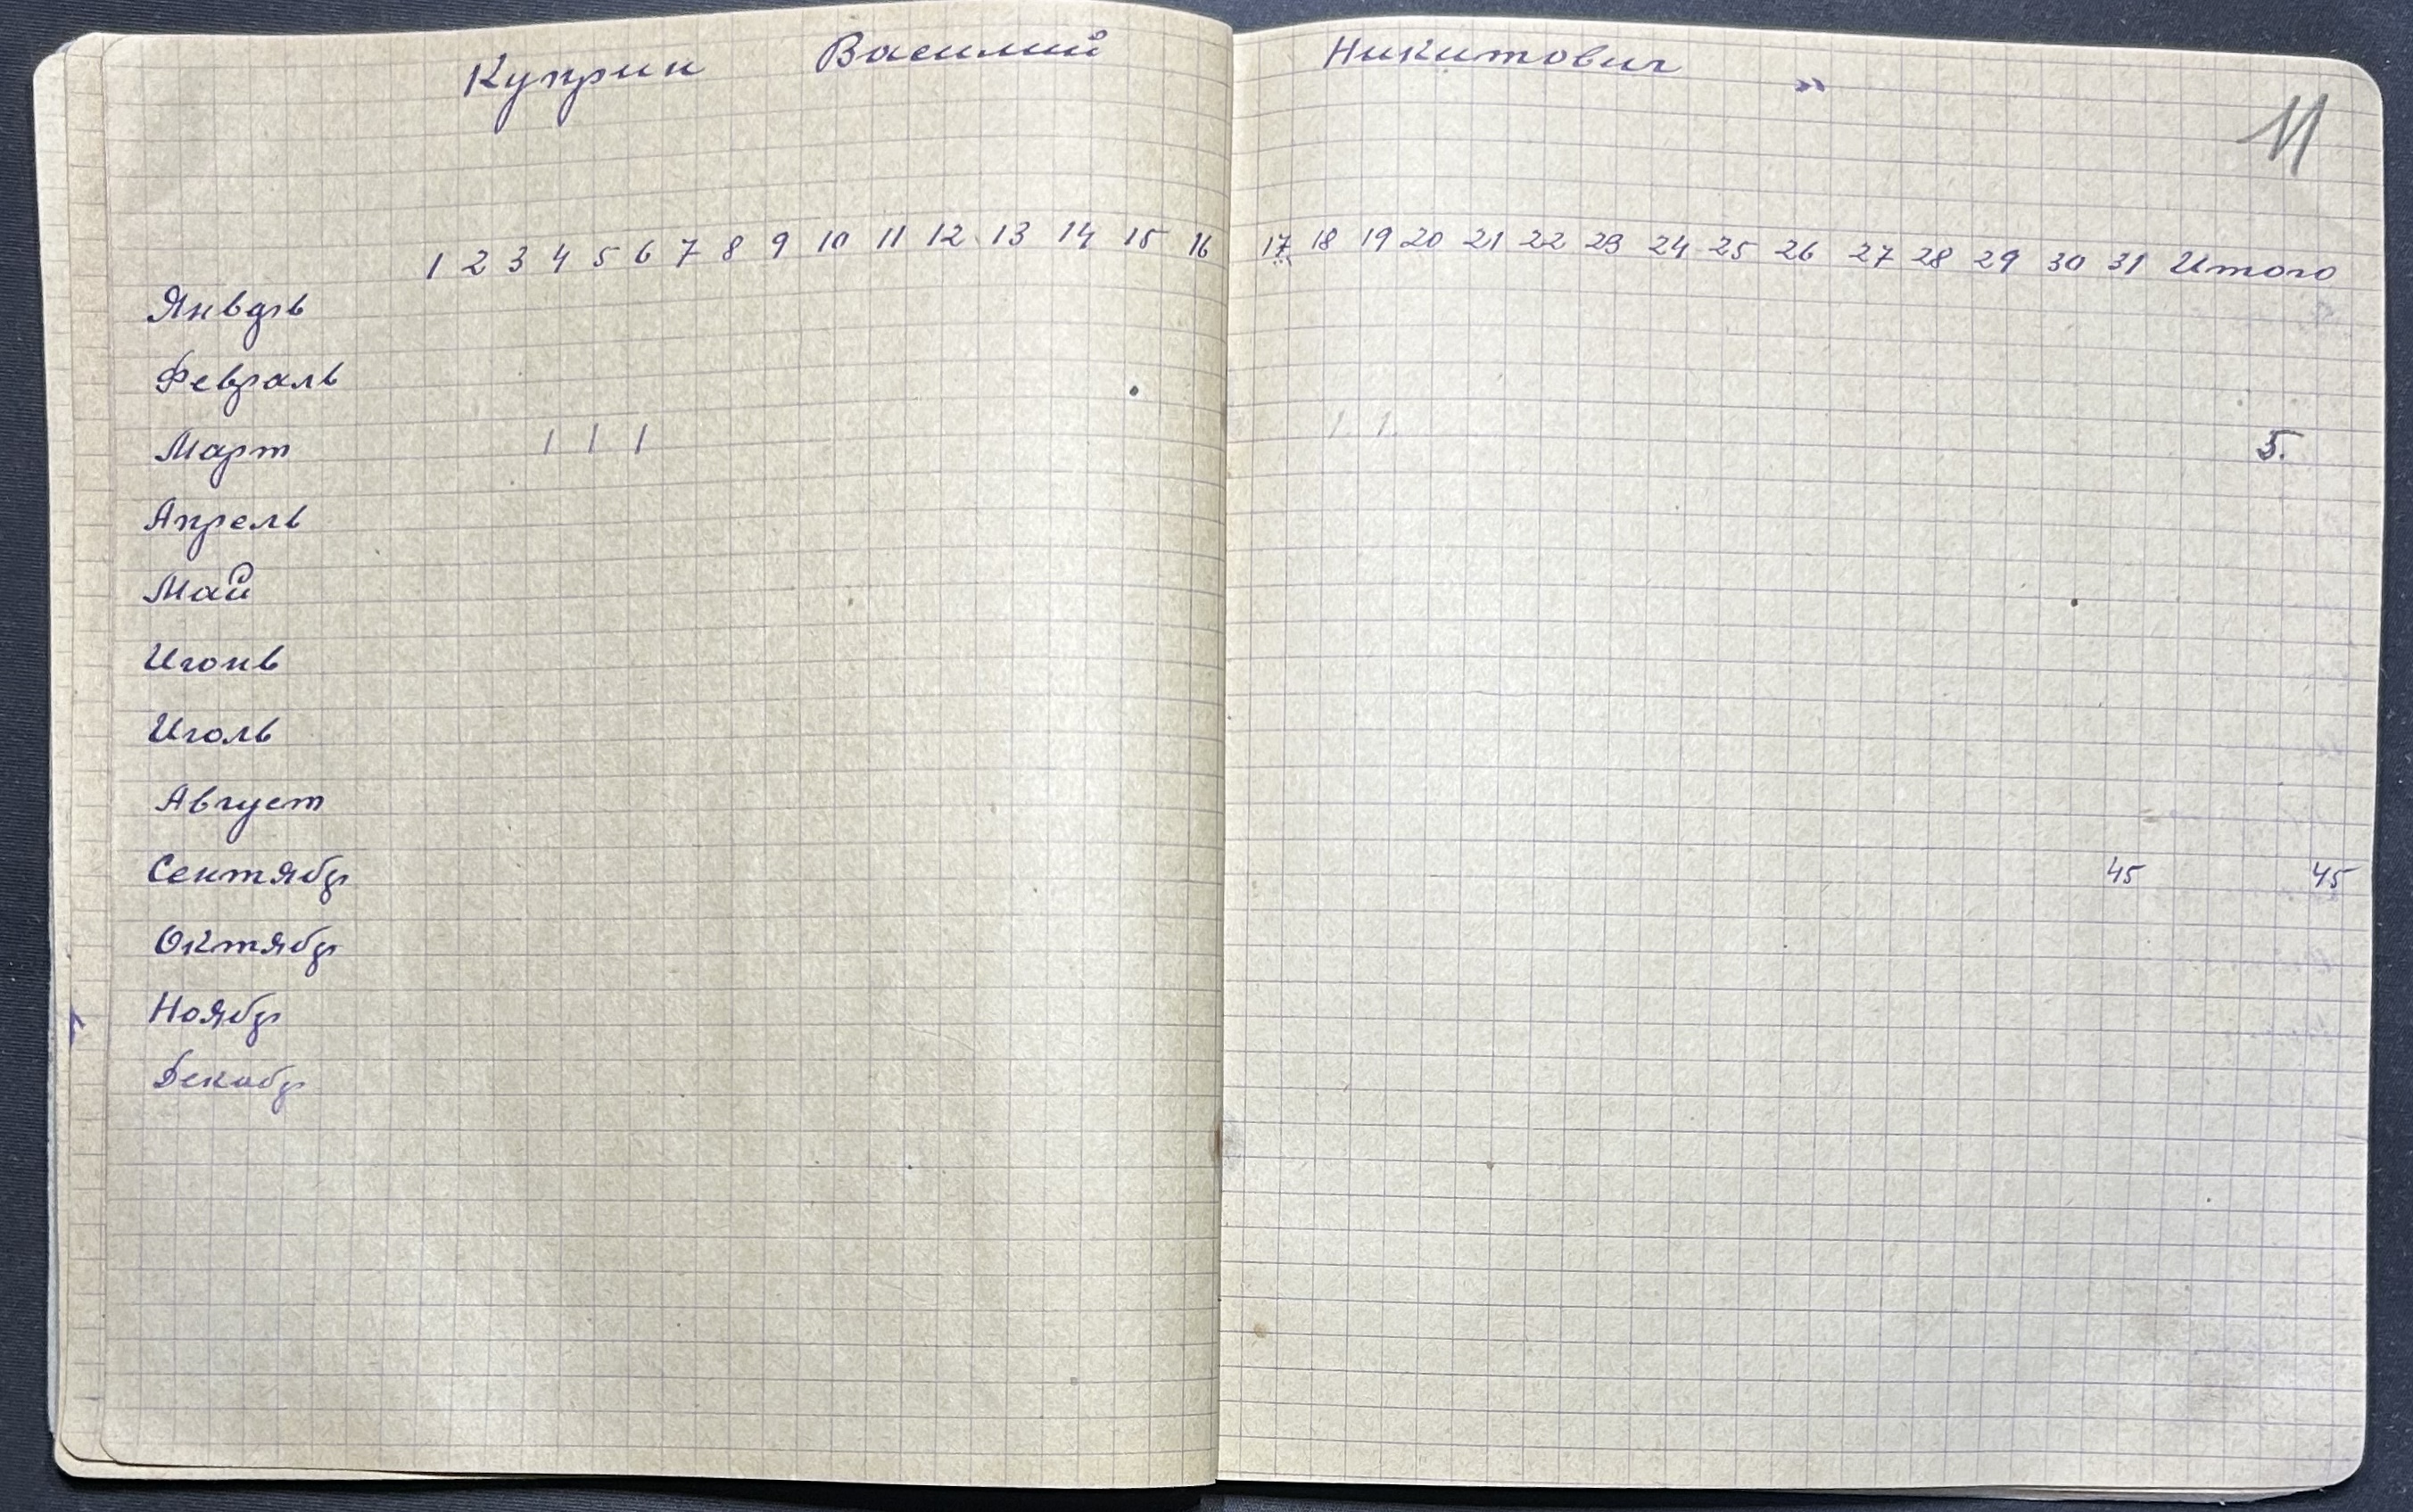 Куприн Василий Никитович "
11
1 2 3 4 5 6 7 8 9 10 11 12 13 14 15 16 17 18 19 20 21 22 23 24 25 26 27 28 29 30 31 Итого
Январь
Февраль
Март 1 1 1 1 1 5.
Апрель
Май
Июнь
Июль
Август
Сентябр 45 45
Октябр
Ноябр
Декабр